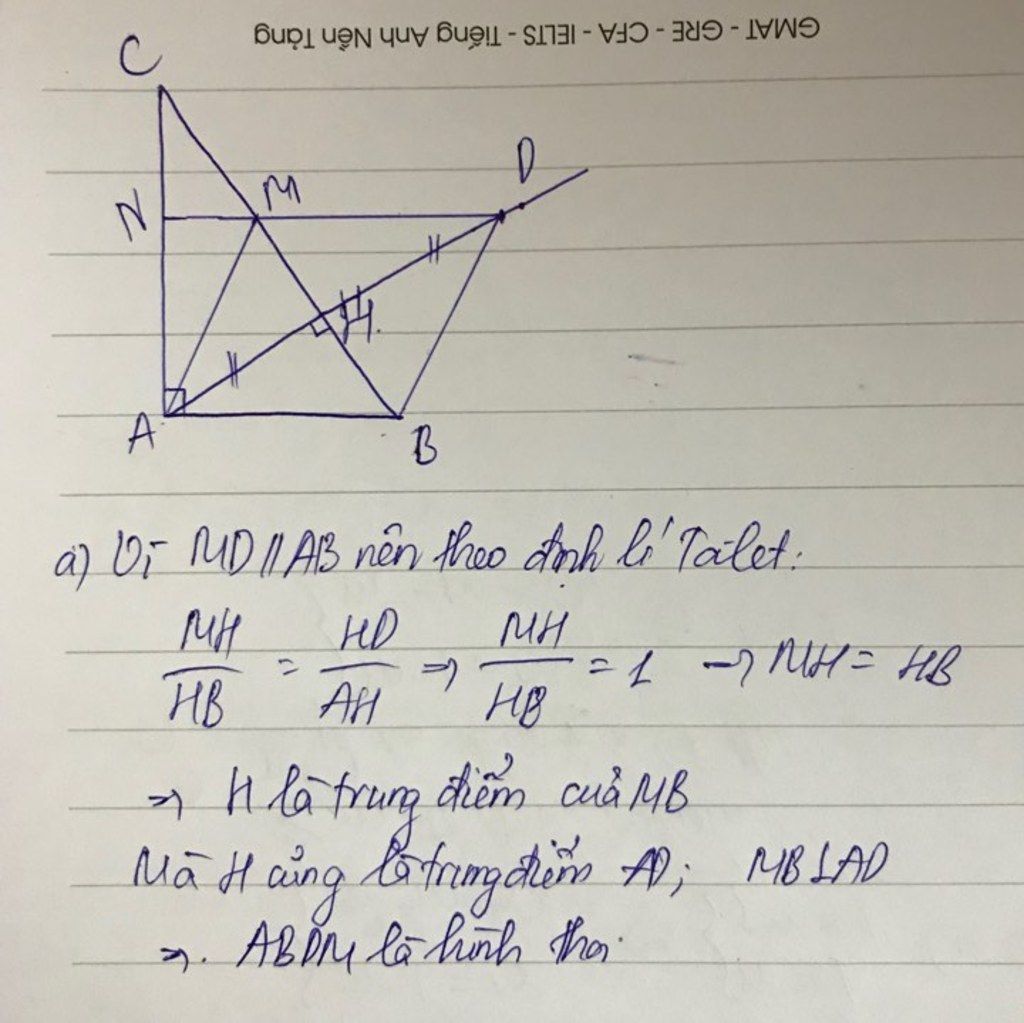 GMAT - GRE - CFA - IELTS - Tiếng Anh Nền Tảng
C
D
N
M
H.
A
B
a) Vì MD // AB nên theo định lí Talet:
MH/HB = HD/AH => MH/HB = 1 → MH = HB
=> H là trung điểm của MB
Mà H cũng là trung điểm AD; MB⊥AD
=>. ABDM là hình thoi